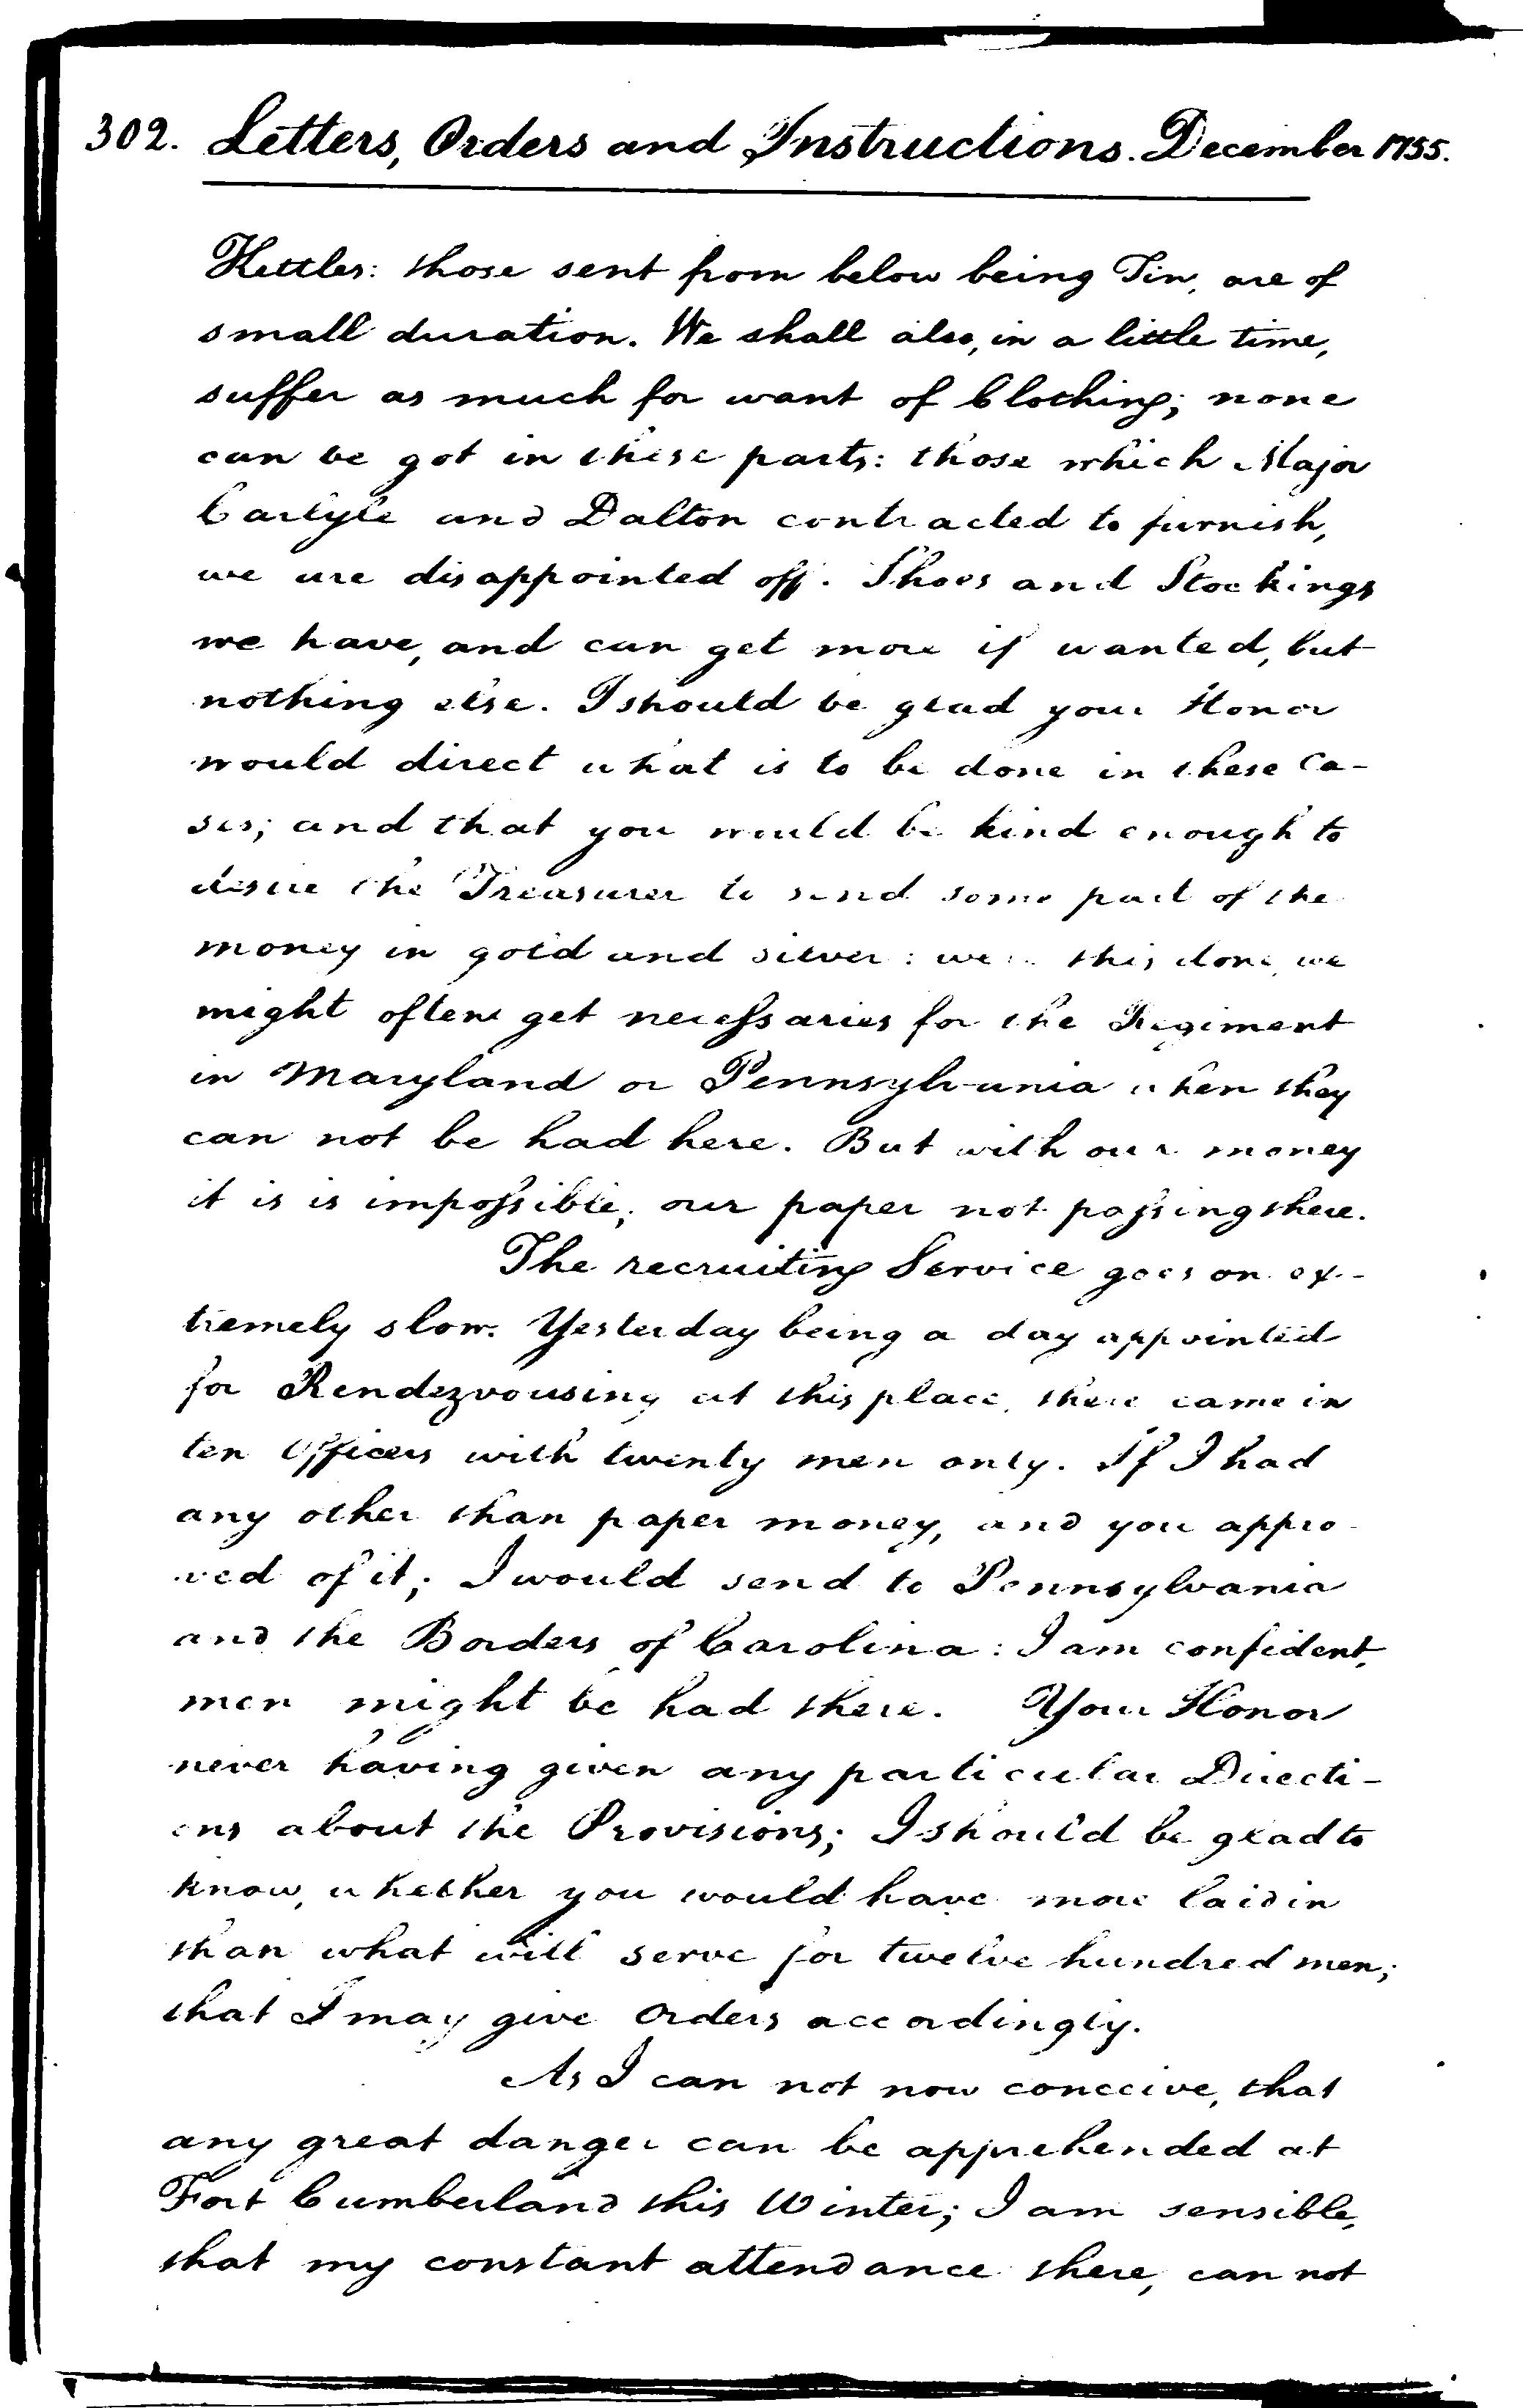 302. Letters, Orders and Instructions. December 1755.
Kettles: those sent from below being Tin, are of
small duration. We shall also, in a little time,
suffer as much for want of Clothing; none
can be got in these parts: those which Major
Carlyle and Dalton contracted to furnish,
we are disappointed off. Shoes and Stockings
we have, and can get more if wanted, but
nothing else. I should be glad your Honor
would direct what is to be done in these Ca-
ses; and that you would be kind enough to
desire the Treasurer to send some part of the
money in gold and silver: were this done, we
might often get necessaries for the Regiment
in Maryland or Pennsylvania when they
can not be had here. But with our money
it is is impossible; our paper not passing there.
The recruiting Service goes on ex-
tremely slow. Yesterday being a day appointed
for Rendezvousing at this place, there came in
ten Officers with twenty men only. If I had
any other than paper money, and you appro-
ved of it; I would send to Pennsylvania
and the Borders of Carolina: I am confident,
men might be had there. Your Honor
never having given any particular Directi-
ons about the Provisions; I should be glad to
know, whether you would have more laid in
than what will serve for twelve hundred men;
that I may give Orders accordingly.
As I can not now conceive, that
any great danger can be apprehended at
Fort Cumberland this Winter; I am sensible,
that my constant attendance there, can not